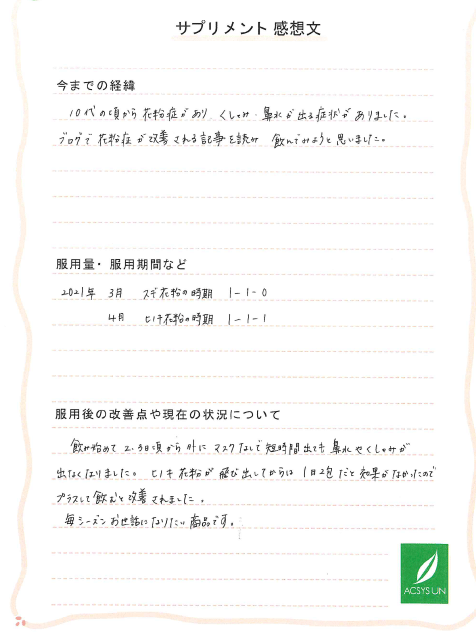 サプリメント 感想文
今までの経緯
10代の頃から花粉症があり くしゃみ・鼻水が出る症状がありました。
ブログで花粉症が改善される記事を読み 飲んでみようと思いました。
服用量・服用期間など
2021年 3月 スギ花粉の時期 1-1-0
4月 ヒノキ花粉の時期 1-1-1
服用後の改善点や現在の状況について
飲み始めて 2.3日頃から外にマスクなしで短時間出ても鼻水やくしゃみが
出なくなりました。ヒノキ花粉が飛び出してからは 1日2包だと効果がなかったので
プラスして飲むと改善されました。
毎シーズンお世話になりたい商品です。
ACSYSUN